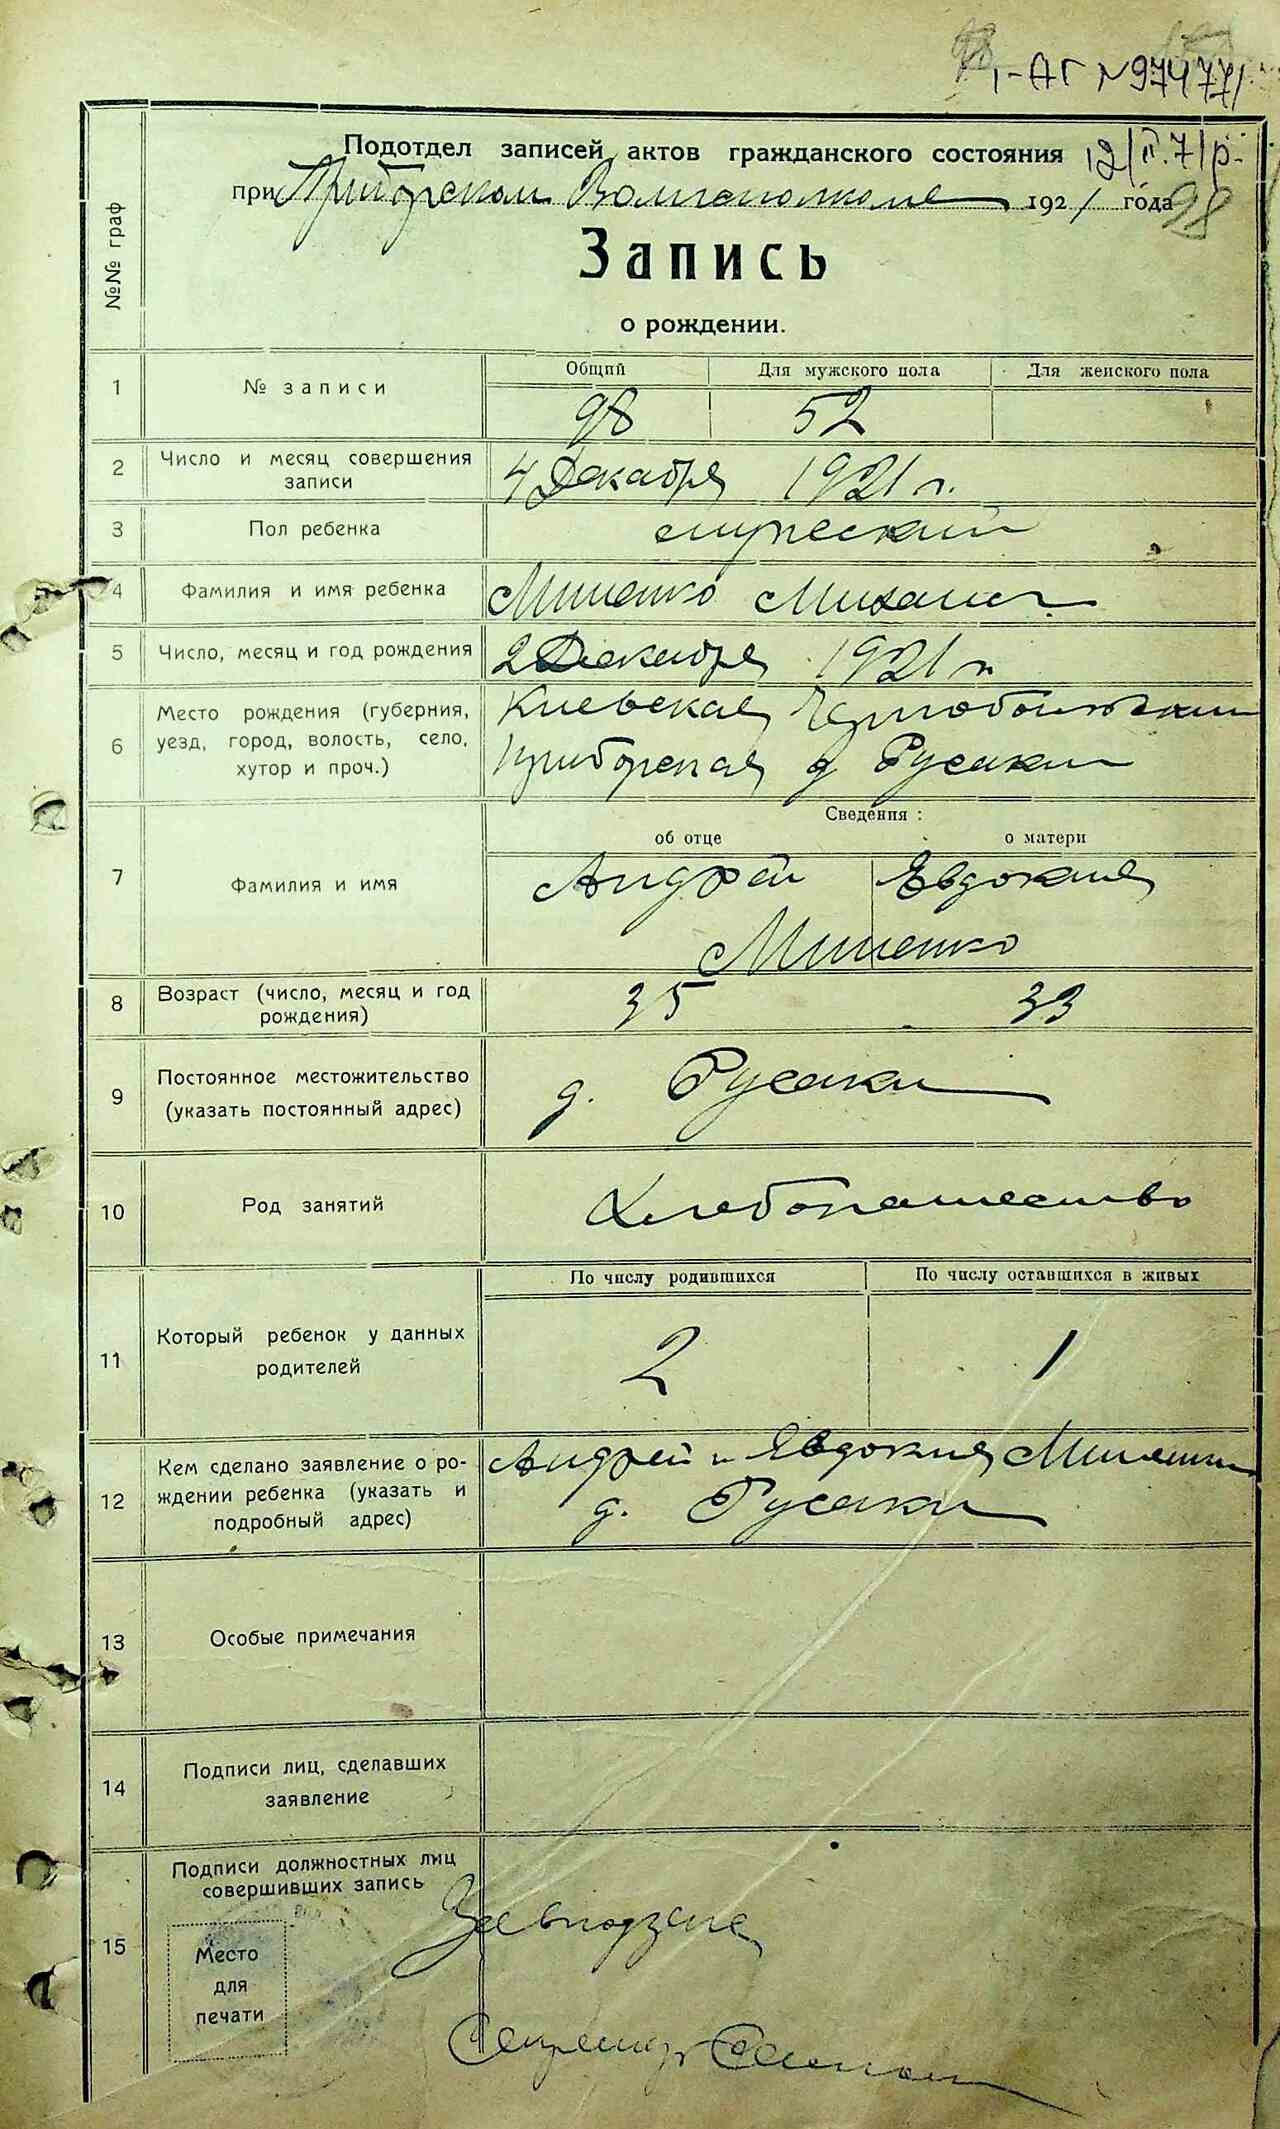 98
І-АГ № 974771
Подотдел записей актов гражданского состояния
12/ІІ.71р.
при Приборском Волисполкоме 1921 года
98
Запись
о рождении.
№№ граф
Общий Для мужского пола Для женского пола
1 № записи 98 52
2 Число и месяц совершения
записи
4 Декабря 1921 г.
3 Пол ребенка мужеский
4 Фамилия и имя ребенка Миненко Михаил
5 Число, месяц и год рождения 2 Декабря 1921 г.
6 Место рождения (губерния,
уезд, город, волость, село,
хутор и проч.)
Киевская
Приборская д Русаки
Сведения:
об отце о матери
7 Фамилия и имя Андрей Евдокия
Миненко
8 Возраст (число, месяц и год
рождения)
35 33
9 Постоянное местожительство
(указать постоянный адрес)
д. Русаки
10 Род занятий Хлебопашество
По числу родившихся По числу оставшихся в живых
11 Который ребенок у данных
родителей
2 1
12 Кем сделано заявление о ро-
ждении ребенка (указать и
подробный адрес)
Андрей и Евдокия Миненки
д. Русаки
13 Особые примечания
14 Подписи лиц, сделавших
заявление
15 Подписи должностных лиц
совершивших запись
Место
для
печати
Завподзаге
Секретарь